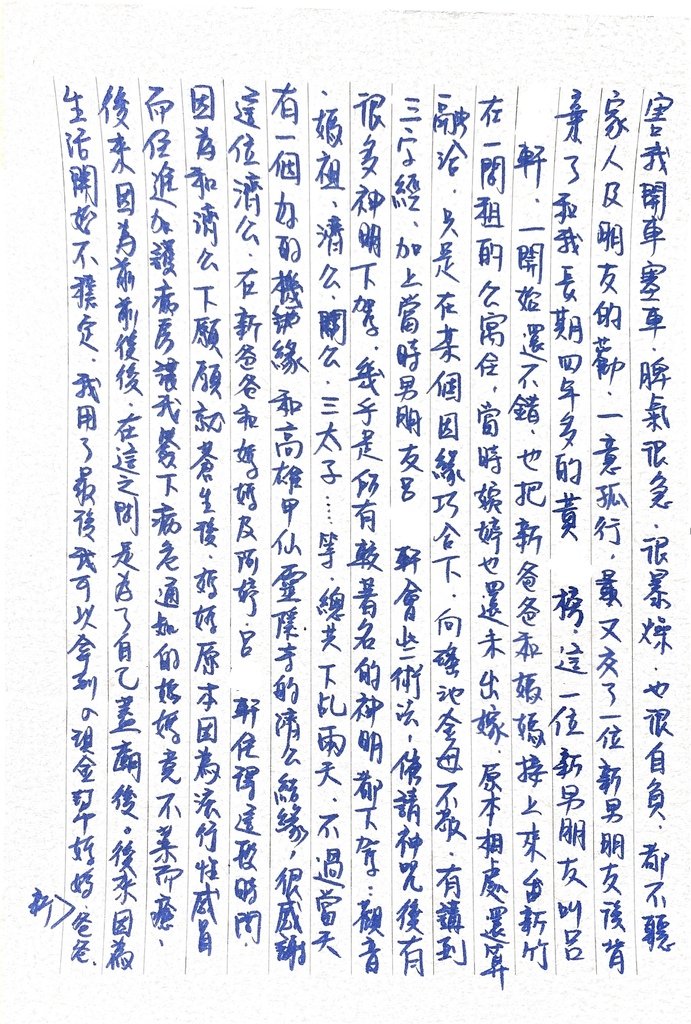 害我開車塞車．脾氣很急．很暴燥．也很自負．都不聽
家人及朋友的勸．一意孤行，最又交了一位新男朋友後背
棄了和我長期四年多的黃 榕．這一位新男朋友叫呂
軒．一開始還不錯．也把新爸爸和媽媽接上來台新竹
在一間租的公寓住，當時嬪婷也還未出嫁．原本相處還算
融洽．只是在某個因緣巧合下．向瑤池金母不敬．有講到
三字經．加上當時男朋友呂 軒會些術法，催請神咒後有
很多神明下駕．幾乎是所有較著名的神明都下駕…觀音
．媽祖、濟公、關公、三太子……等．總共下凡兩天．不過當天
有一個好的機緣 和高雄甲仙靈隱寺的濟公結緣，很感謝
這位濟公．在新爸爸和媽媽及阿婷．呂 軒住這段時間．
因為和濟公下願願就蒼生後．媽媽原本因為流行性感冒
而住進加護病房讓我嚴下病危通知的媽媽竟不藥而癒．
後來因為前前後後．在這之間是為了自己蓋廟後。後來因為
生活開始不穩定．我用了最後我可以拿到的現金幫媽媽、爸爸．
新